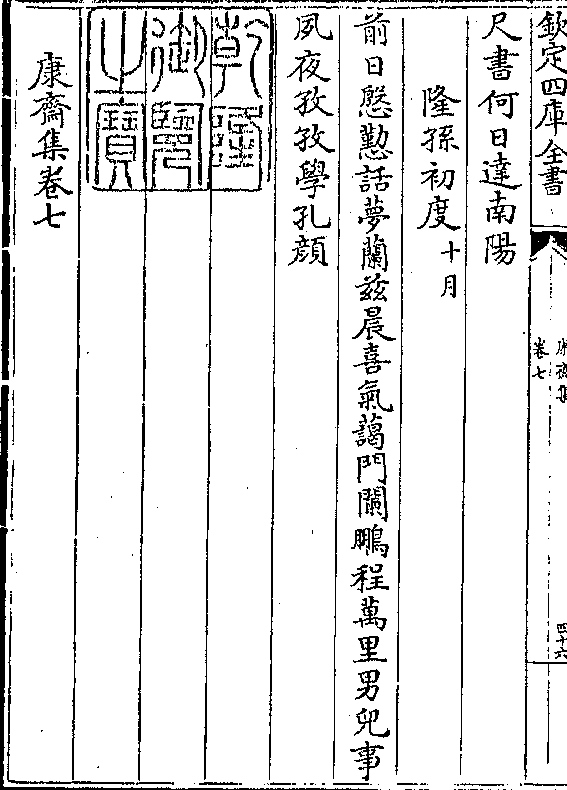 欽定四庫全書
康齋集
卷七
四十六
尺書何日達南陽
隆孫初度十月
前日慇懃話夢蘭茲晨喜氣藹門闌鵬程萬里男兒事
夙夜孜孜學孔顔
乾隆
御覽
之寶
康齋集卷七